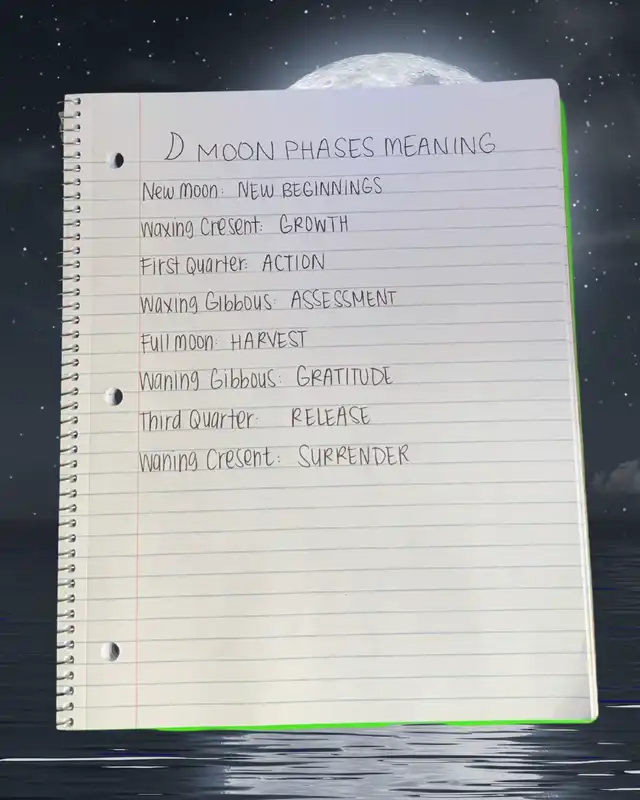 D MOON PHASES MEANING
New moon: NEW BEGINNINGS
Waxing Cresent: GROWTH
First Quarter: ACTION
Waxing Gibbous: ASSESSMENT
Full moon: HARVEST
Waning Gibbous: GRATITUDE
Third Quarter: RELEASE
Waning Cresent: SURRENDER